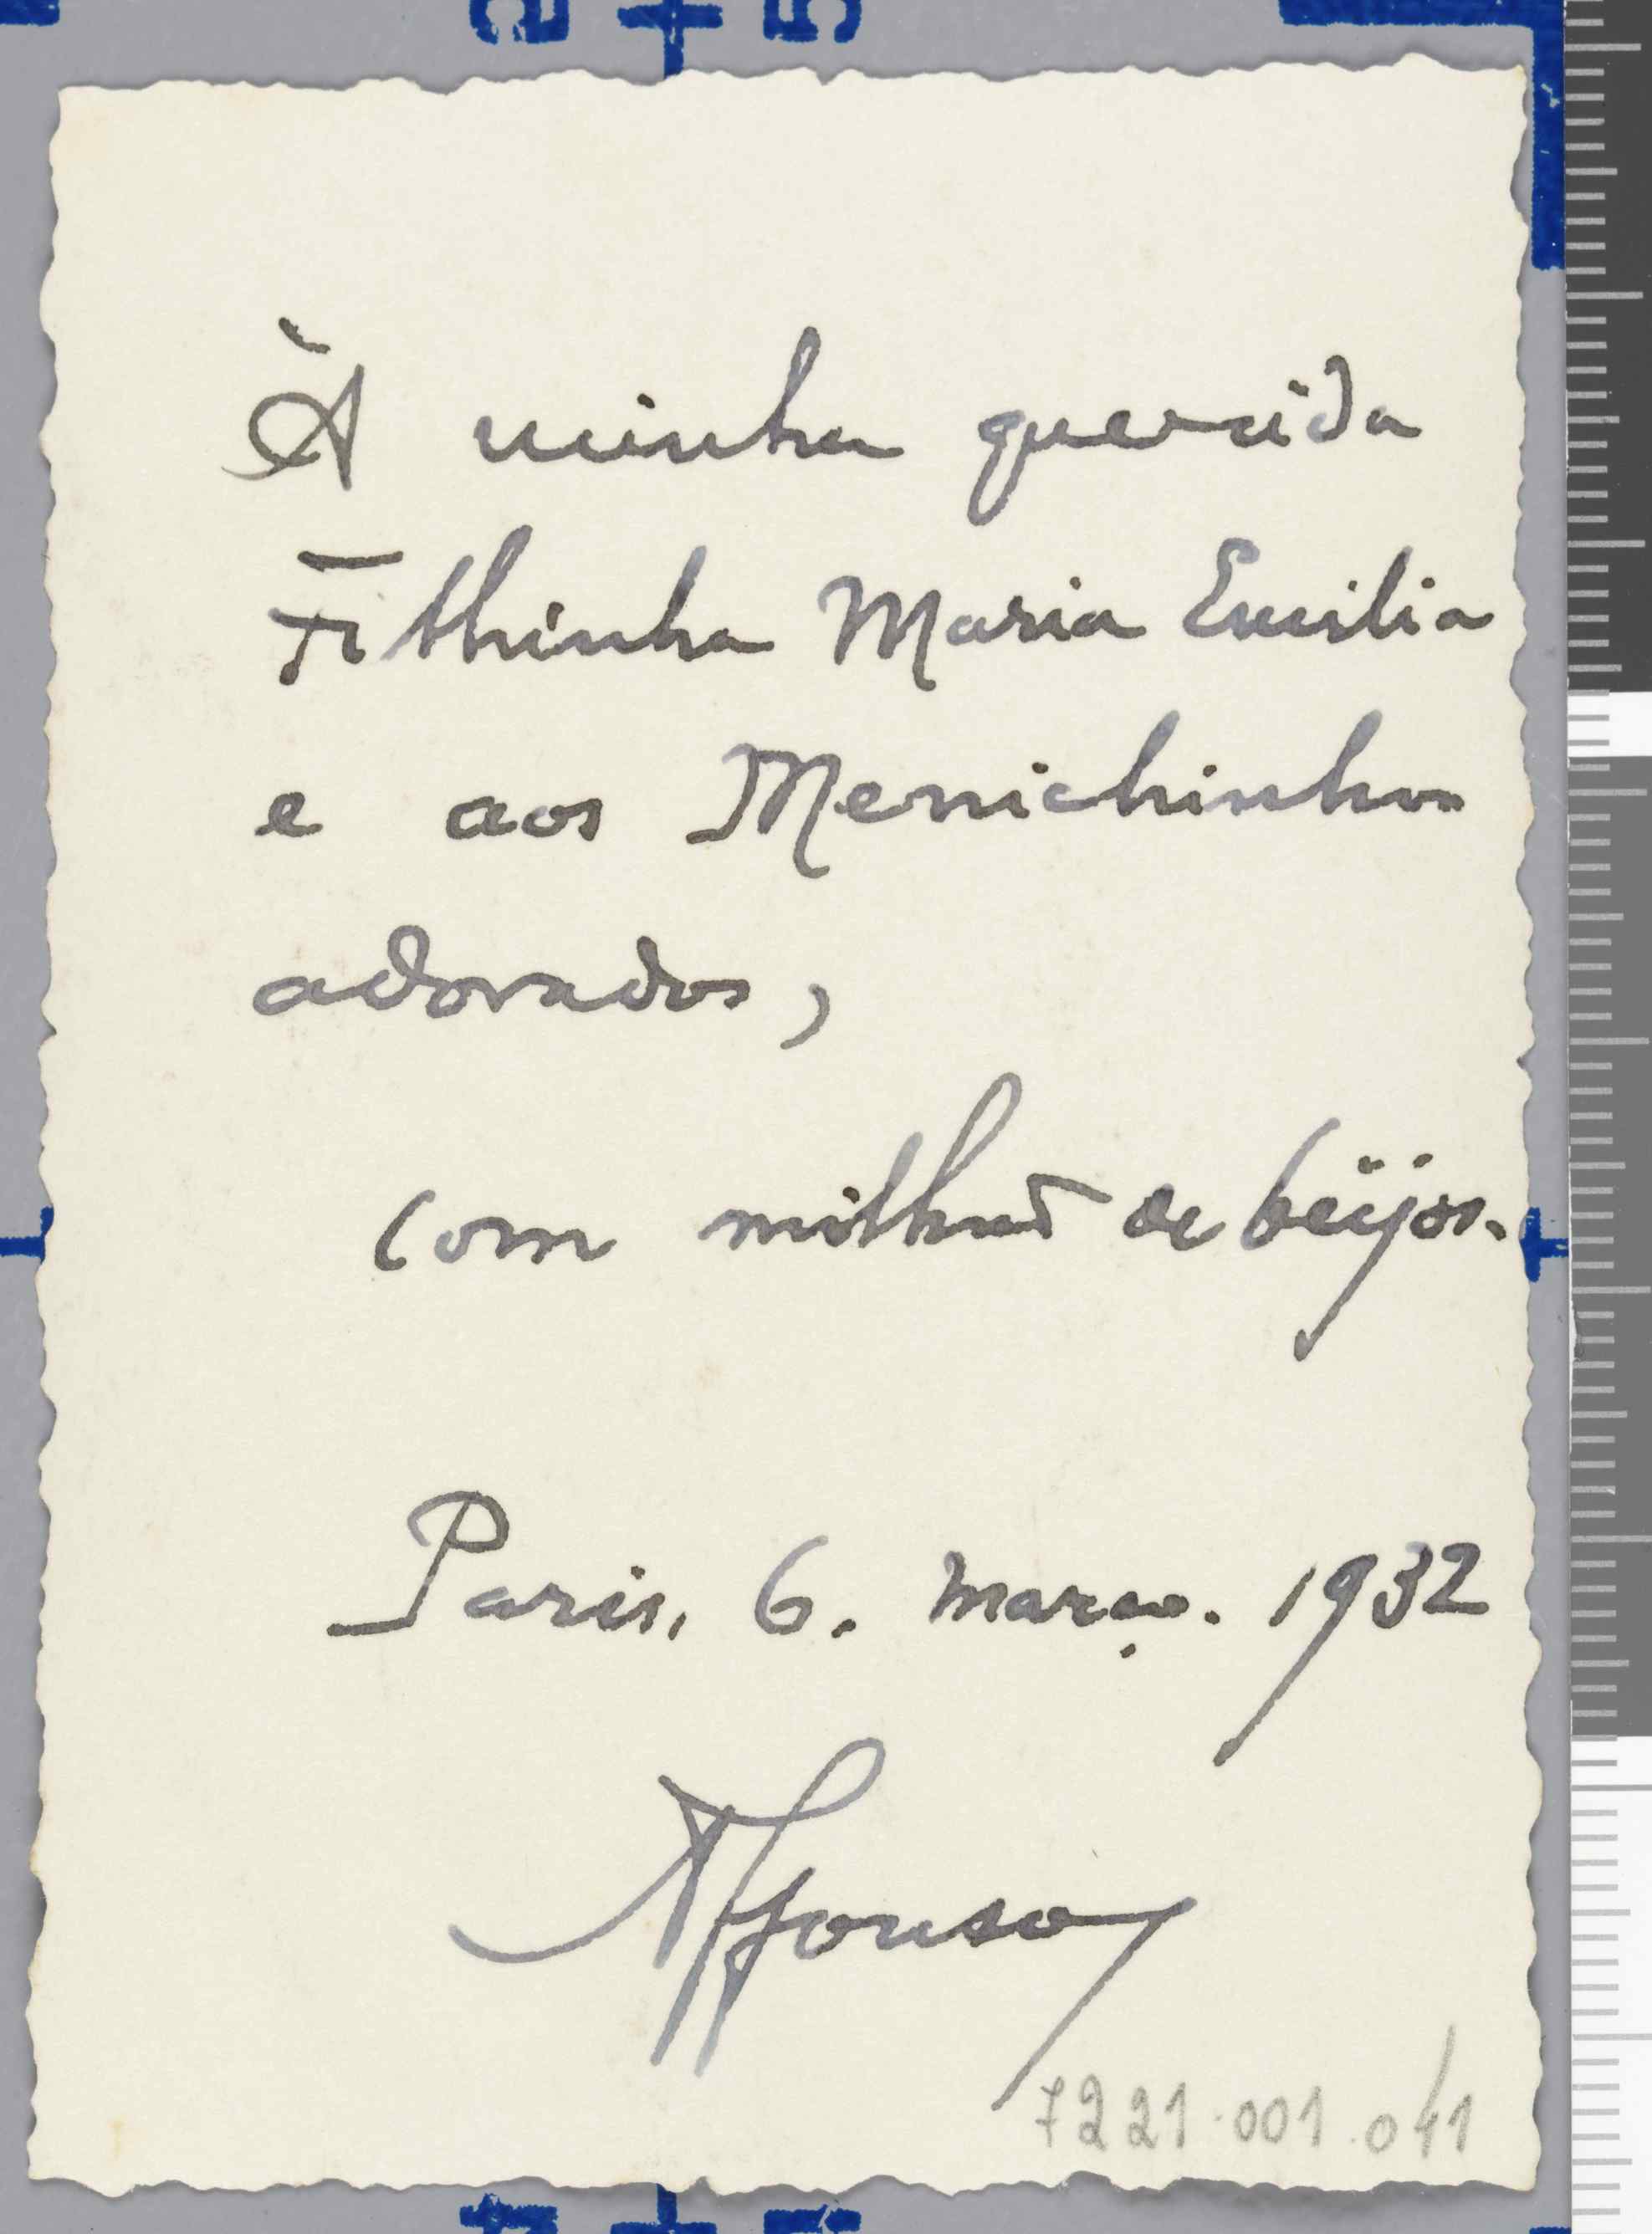 À minha querida
Filhinha Maria Emilia
e aos Menichinhos
adorados,
com milhões de beijos.
Paris, 6. março. 1932
Affonso
7221.001.041